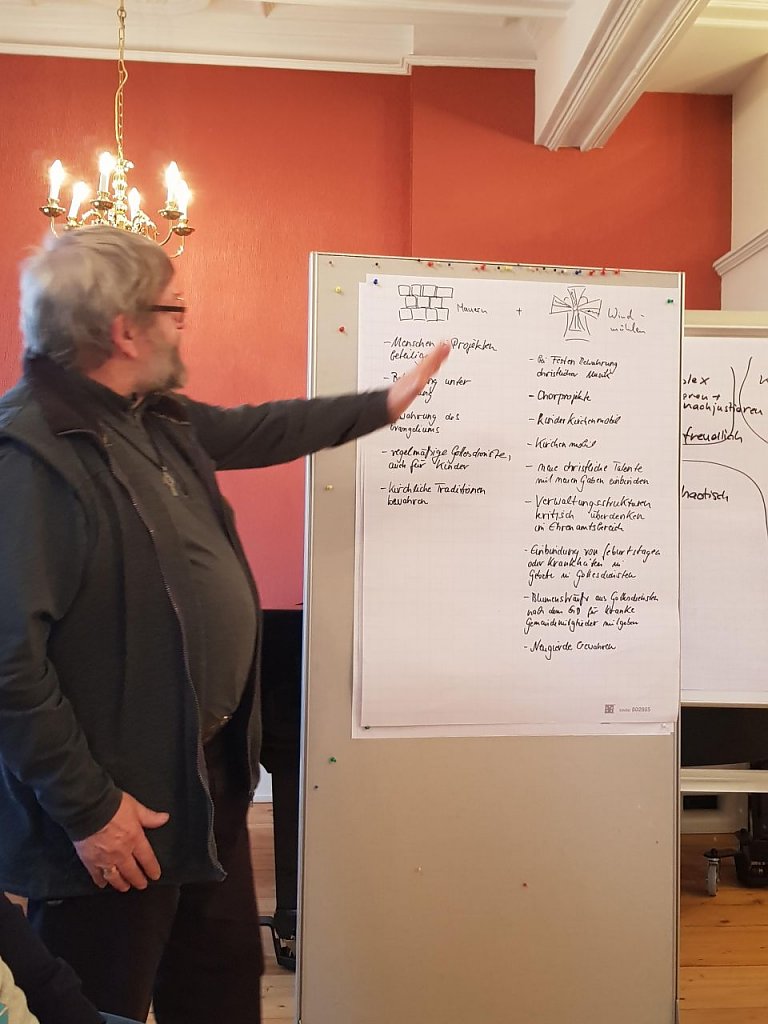 Mauern + Wind-
mühlen
- Menschen Projekten
beteilig
unter
ung
wahrung des
Evangeliums
- regelmäßige Gottesdienste,
auch für Kinder
- Kirchliche Traditionen
bewahren
- Bei Festen Bewahrung
christlicher Musik
- Chorprojekte
- Kinderkirchenmobil
- Kirchenmobil
- neue christliche Talente
mit neuen Gaben einbinden
- Verwaltungsstrukturen
kritisch überdenken
im Ehrenamtsbereich
- Einbindung von Geburtstagen
oder Krankheiten in
Gebete in Gottesdiensten
- Blumensträuße aus Gottesdiensten
nach dem GD für Kranke
Gemeindemitglieder mitgeben
- Neugierde bewahren
lex
nachjustieren
freundlich
haotisch